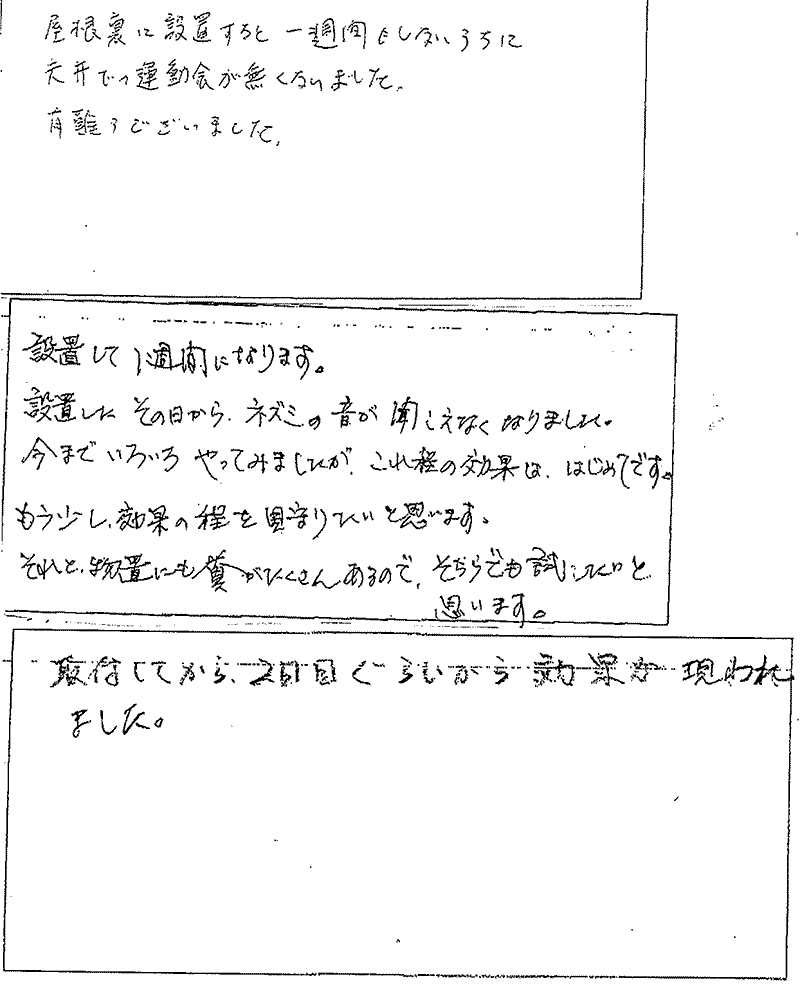 屋根裏に設置すると一週間もしないうちに
天井での運動会が無くなりました。
有難うございました。
設置して1週間になります。
設置したその日から、ネズミの音が聞こえなくなりました。
今までいろいろやってみましたが、これ程の効果は、はじめてです。
もう少し、効果の程を見守りたいと思います。
それと、物置にも糞がたくさんあるので、そちらでも試したいと
思います。
取付してから、2日目ぐらいから効果が現われ
ました。